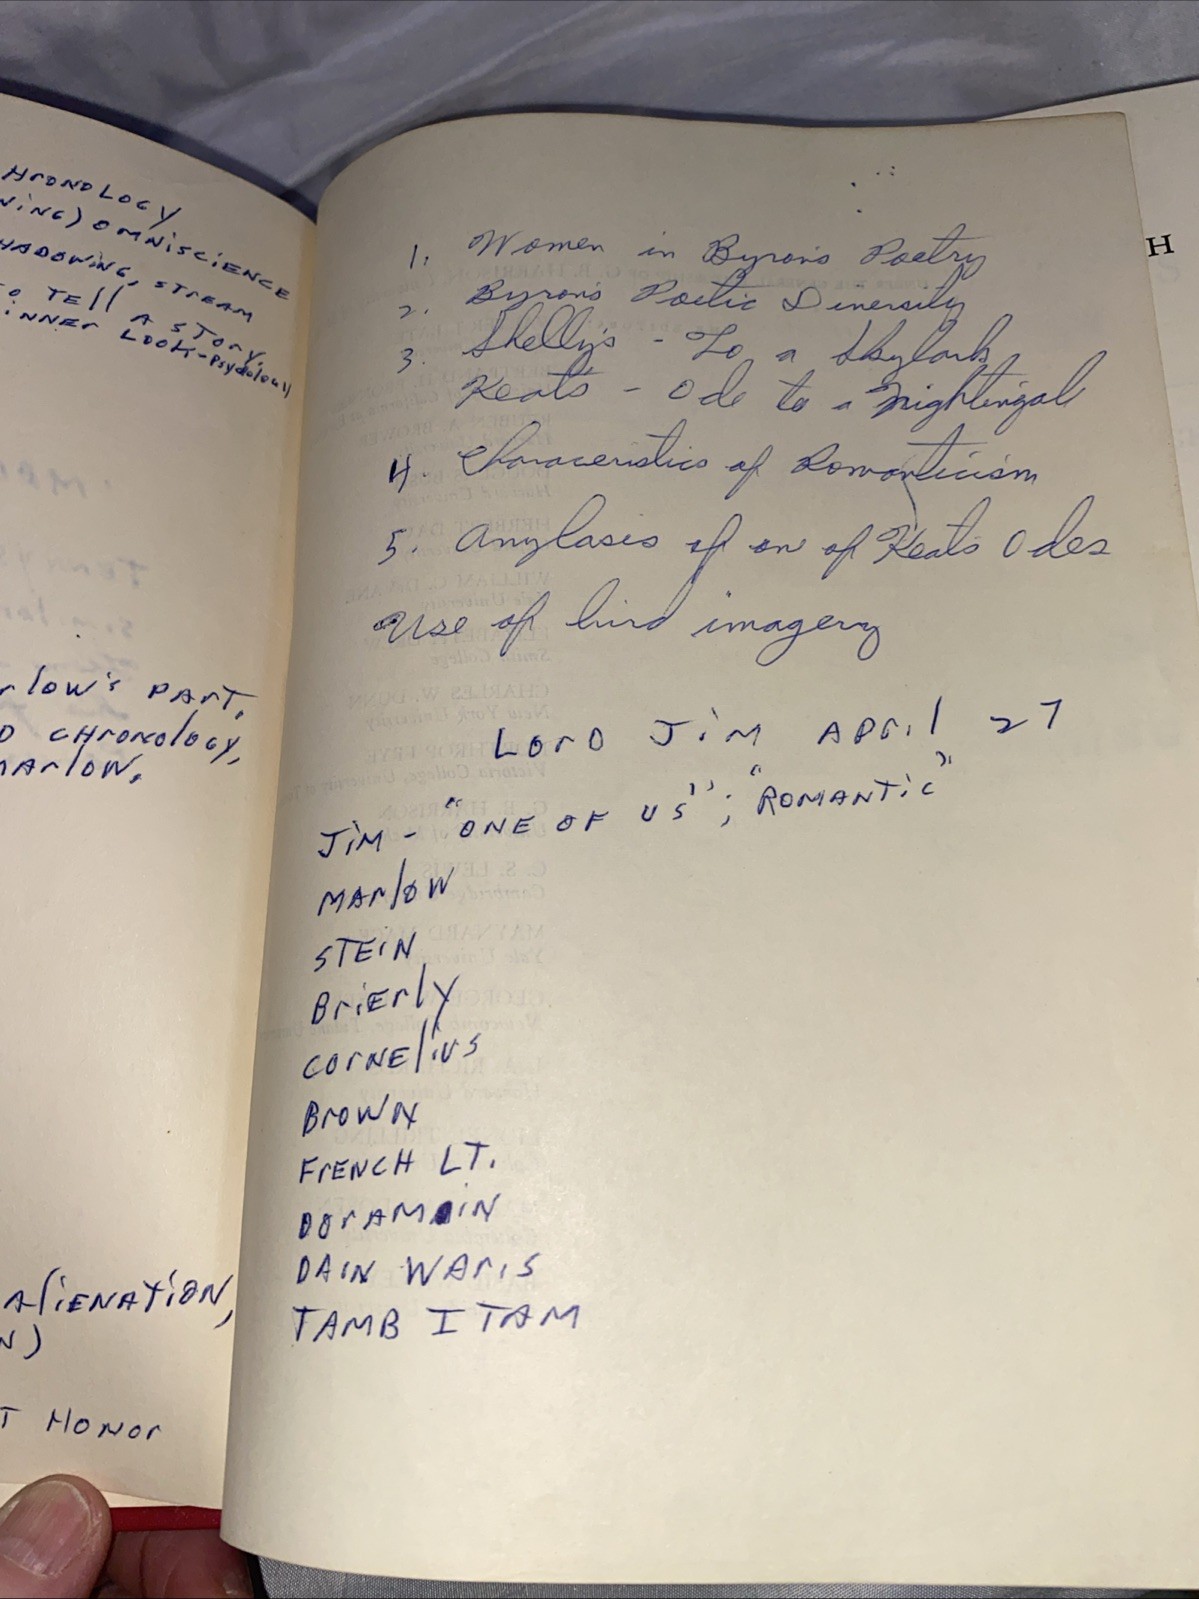 HRONOLOGY
NING) OMNISCIENCE
HADOWING, STREAM
O TELL A STORY.
INNER LOOK-Psydology
rlow's PART,
D CHronology,
MARLOW,
AliENATION,
N)
T HONOr
H
1. Women in Byron's Poetry
2. Byron's Poetic Diversity
3. Shelly's - To a Skylark
Keats' - Ode to a Nightingal
4. Characeristics of Romanticism
5. Anylasis of on of Keats Odes
Use of bird imagery
LorD Jim APril 27
Jim - "ONE OF US"; "ROMANTIC"
MArlOW
STEIN
BriErly
COrNElius
BrOWN
FrENCH LT.
DOrAMIN
DAIN WAris
TAMB ITAM